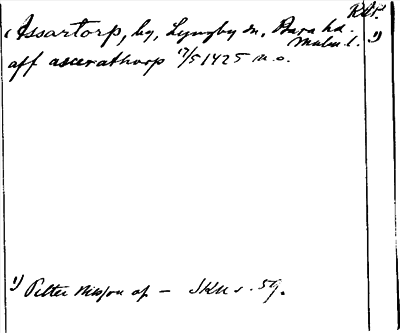 RAP.
Assartorp, by, Lyngby sn, Bara hd.
Malm. l. 1)
aff asserathorp 17/5 1425 m.o.
1) Petter Nilsson af — SKU s. 59.